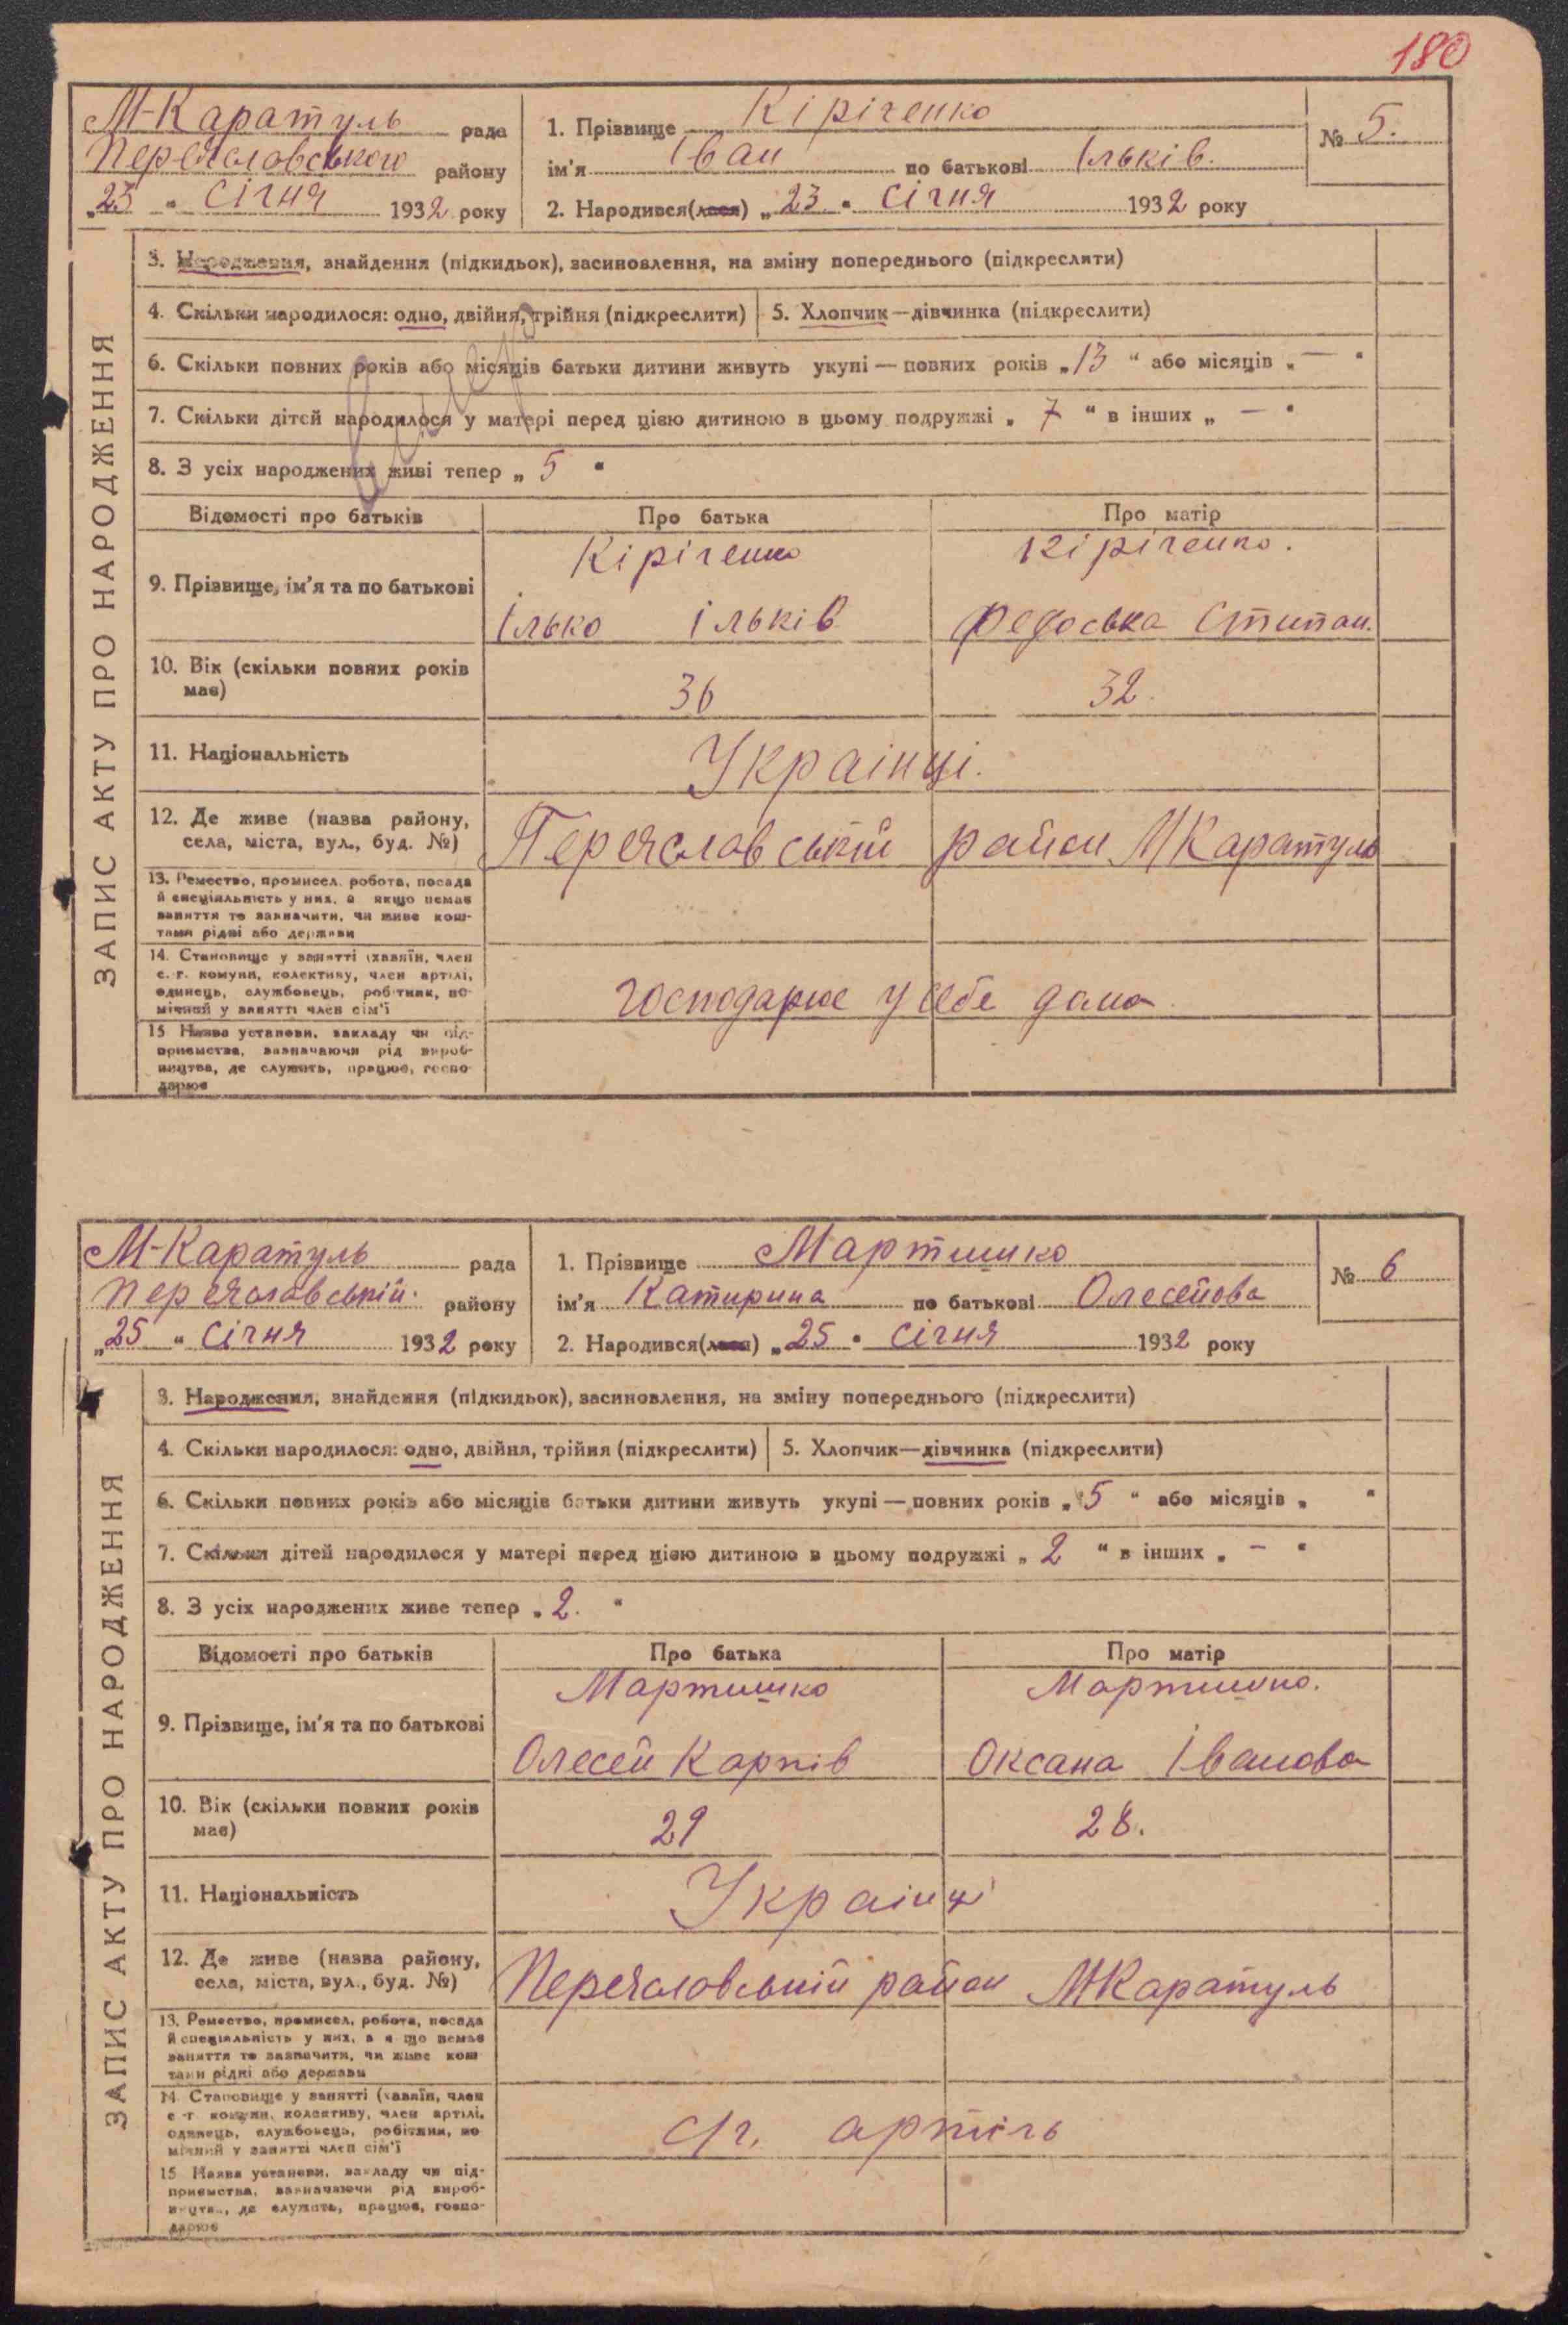 180
М-Каратуль рада
Переяславського району
„23 " січня 1932 року
1. Прізвище Кіріченко
ім'я Іван по батькові Ільків.
2. Народився(лася) „ 23 " січня 1932 року
№ 5.
ЗАПИС АКТУ ПРО НАРОДЖЕННЯ
3. Народження, знайдення (підкидьок), засиновлення, на зміну попереднього (підкреслити)
4. Скільки народилося: одно, двійня, трійня (підкреслити)
5. Хлопчик—дівчинка (підкреслити)
6. Скільки повних років або місяців батьки дитини живуть укупі — повних років „ 13 " або місяців „ — "
7. Скільки дітей народилося у матері перед цією дитиною в цьому подружжі „ 7 " в інших „ — "
8. З усіх народжених живі тепер „ 5 "
Відомості про батьків
Про батька
Про матір
9. Прізвище, ім'я та по батькові
Кіріченко
Ілько Ільків
Кіріченко.
Федоська Стипан.
10. Вік (скільки повних років має)
36
32.
11. Національність
Украінці.
12. Де живе (назва району,
села, міста, вул., буд. №)
Переяславській район М Каратуль
13. Ремество, промисел, робота, посада
й спеціяльність у них, а якщо немає
заняття то зазначити, чи живе кош-
тами рідні або держави
14. Становище у занятті (хазяїн, член
с.-г. комуни, колективу, член артілі,
одинець, службовець, робітник, по-
мічний у занятті член сім'ї
господарює у себе дома
15 Назва установи, закладу чи під-
приємства, зазначаючи рід вироб-
ництва, де служить, працює, госпо-
дарює
М-Каратуль рада
Переяславській. району
„25 " січня 1932 року
1. Прізвище Мартишко
ім'я Катирина по батькові Олесейова
2. Народився(лася) „ 25 " січня 1932 року
№ 6
ЗАПИС АКТУ ПРО НАРОДЖЕННЯ
3. Народження, знайдення (підкидьок), засиновлення, на зміну попереднього (підкреслити)
4. Скільки народилося: одно, двійня, трійня (підкреслити)
5. Хлопчик—дівчинка (підкреслити)
6. Скільки повних років або місяців батьки дитини живуть укупі — повних років „ 5 " або місяців „ "
7. Скільки дітей народилося у матері перед цією дитиною в цьому подружжі „ 2 " в інших „ — "
8. З усіх народжених живе тепер „ 2. "
Відомості про батьків
Про батька
Про матір
9. Прізвище, ім'я та по батькові
Мартишко
Олесей Карпів
Мартишко.
Оксана Іванова
10. Вік (скільки повних років
має)
29
28.
11. Національність
Украінці
12. Де живе (назва району,
села, міста, вул., буд. №)
Переяславській район М Каратуль
13. Ремество, промисел, робота, посада
й спеціяльність у них, а якщо немає
заняття то зазначити, чи живе кош
тами рідні або держави
14 Становище у занятті (хазяїн, член
с -г комуни, колективу, член артілі,
одинець, службовець, робітник, по
мічний у занятті член сім'ї
с/г. артіль
15 Назва установи, закладу чи під-
приємства, зазначаючи рід вироб-
ництва, де служить, працює, госпо-
дарює